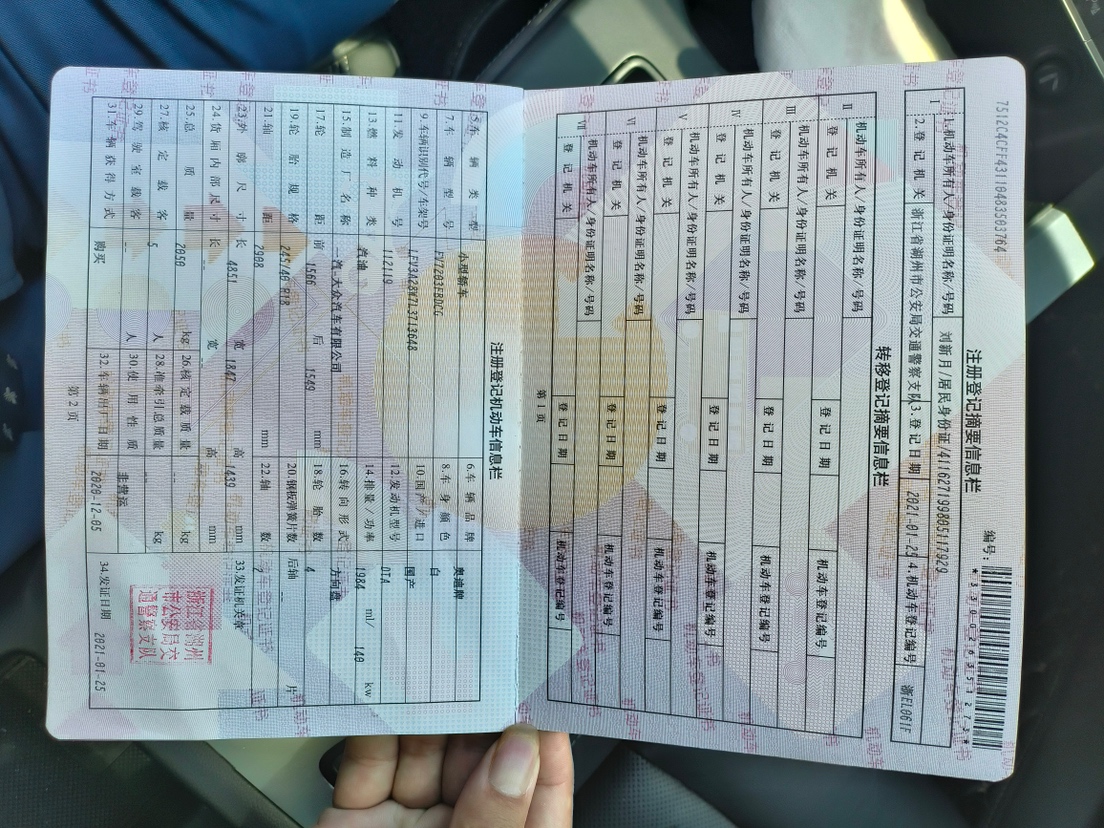 7512C4CFF43110483503764
注册登记摘要信息栏
编号：
I 1.机动车所有人/身份证明名称/号码 刘新月/居民身份证/411627199805117929
2.登记机关 浙江省湖州市公安局交通警察支队 3.登记日期 2021-01-25 4.机动车登记编号 浙EL061F
转移登记摘要信息栏
II 机动车所有人/身份证明名称/号码
登记机关 登记日期 机动车登记编号
III 机动车所有人/身份证明名称/号码
登记机关 登记日期 机动车登记编号
IV 机动车所有人/身份证明名称/号码
登记机关 登记日期 机动车登记编号
V 机动车所有人/身份证明名称/号码
登记机关 登记日期 机动车登记编号
VI 机动车所有人/身份证明名称/号码
登记机关 登记日期 机动车登记编号
VII 机动车所有人/身份证明名称/号码
登记机关 登记日期 机动车登记编号
第 1 页
注册登记机动车信息栏
5.车辆类型 小型轿车 6.车辆品牌 奥迪牌
7.车辆型号 FV7203FBDCG 8.车身颜色 白
9.车辆识别代号/车架号 LFV3A28W7L3713648 10.国产/进口 国产
11.发动机号 112119 12.发动机型号 DTA
13.燃料种类 汽油 14.排量/功率 1984 ml/ 140 kw
15.制造厂名称 一汽-大众汽车有限公司 16.转向形式 方向盘
17.轮距 前 1566 后 1549 mm 18.轮胎数 4
19.轮胎规格 245/45 R18 20.钢板弹簧片数 后轴 -- 片
21.轴距 2908 mm 22.轴数 2
23.外廓尺寸 长 4851 宽 1847 高 1439 mm 33.发证机关章
24.货厢内部尺寸 长 -- 宽 高 mm
25.总质量 2050 kg 26.核定载质量 kg
27.核定载客 5 人 28.准牵引总质量 kg
29.驾驶室载客 -- 人 30.使用性质 非营运
31.车辆获得方式 购买 32.车辆出厂日期 2020-12-05 34.发证日期 2021-01-25
浙江省湖州
市公安局交
通警察支队
第 2 页